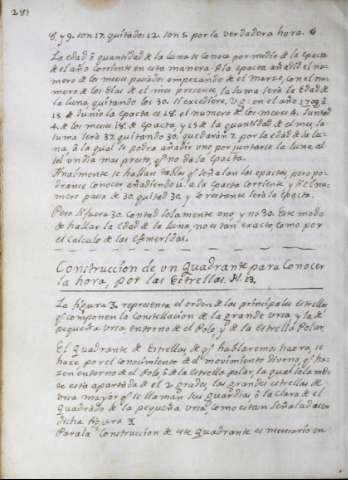 281
8 y 9, son 17, quitados 12. son 5 por la verdadera hora.
La edad ô quantidad de la luna se conoce por medio de la epacta
de el año corriente en esta manera. A la epacta añadid el nu-
mero de los meses passados empezando de el Marzo, con el nu-
mero de los dias de el mes presente, la suma será la edad de
la luna, quitando los 30. si excediere, v.g: en el año 1703 à
15 de Junio la epacta es 18. el numero de los meses 4. Junto
4. de los meses 18. de epacta, y 15 de la quantidad de el mes, la
suma será 37. quitando 30. quedarán 7. por la edad de la lu-
na, à la qual se podra añadir uno por juntarse la luna al
sol un dia mas presto, q̃ no da la epacta.
finalmente se hallan tablas q̃ señalan las epactas, pero po-
dranse conocer, añadiendo 11. a la epacta corriente, y si el nu-
mero passa de 30. quitad 30, y lo restante será la epacta.
Pero si fuera 30. contad solamente uno, y no 30. Este modo
de hallar la edad de la luna, no es tan exacto, como por
el calculo de las efemerides.
Construccion de un quadrante para conocer
la hora, por las Estrellas. N. 13.
La figura 3. representa el orden de las principales estrellas
q̃ componen la constellacion de la grande ursa, y la de
pequeña ursa, entorno de el Polo, y de la estrella Polar.
El quadrante de Estrellas de q̃ hablaremos luego, se
hace por el conocimiento de el movimiento diurno, q̃ ha-
zen entorno de el Polo, ô de la estrella polar, la qual solam̃te
se esta apartada de el 2 grados, las grandes estrellas de
ursa mayor q̃ se llaman sus guardias ô la clara de el
quadrado de la pequeña ursa, como estan señaladas en
dicha figura 3.
Para la construccion de este quadrante es necesario un